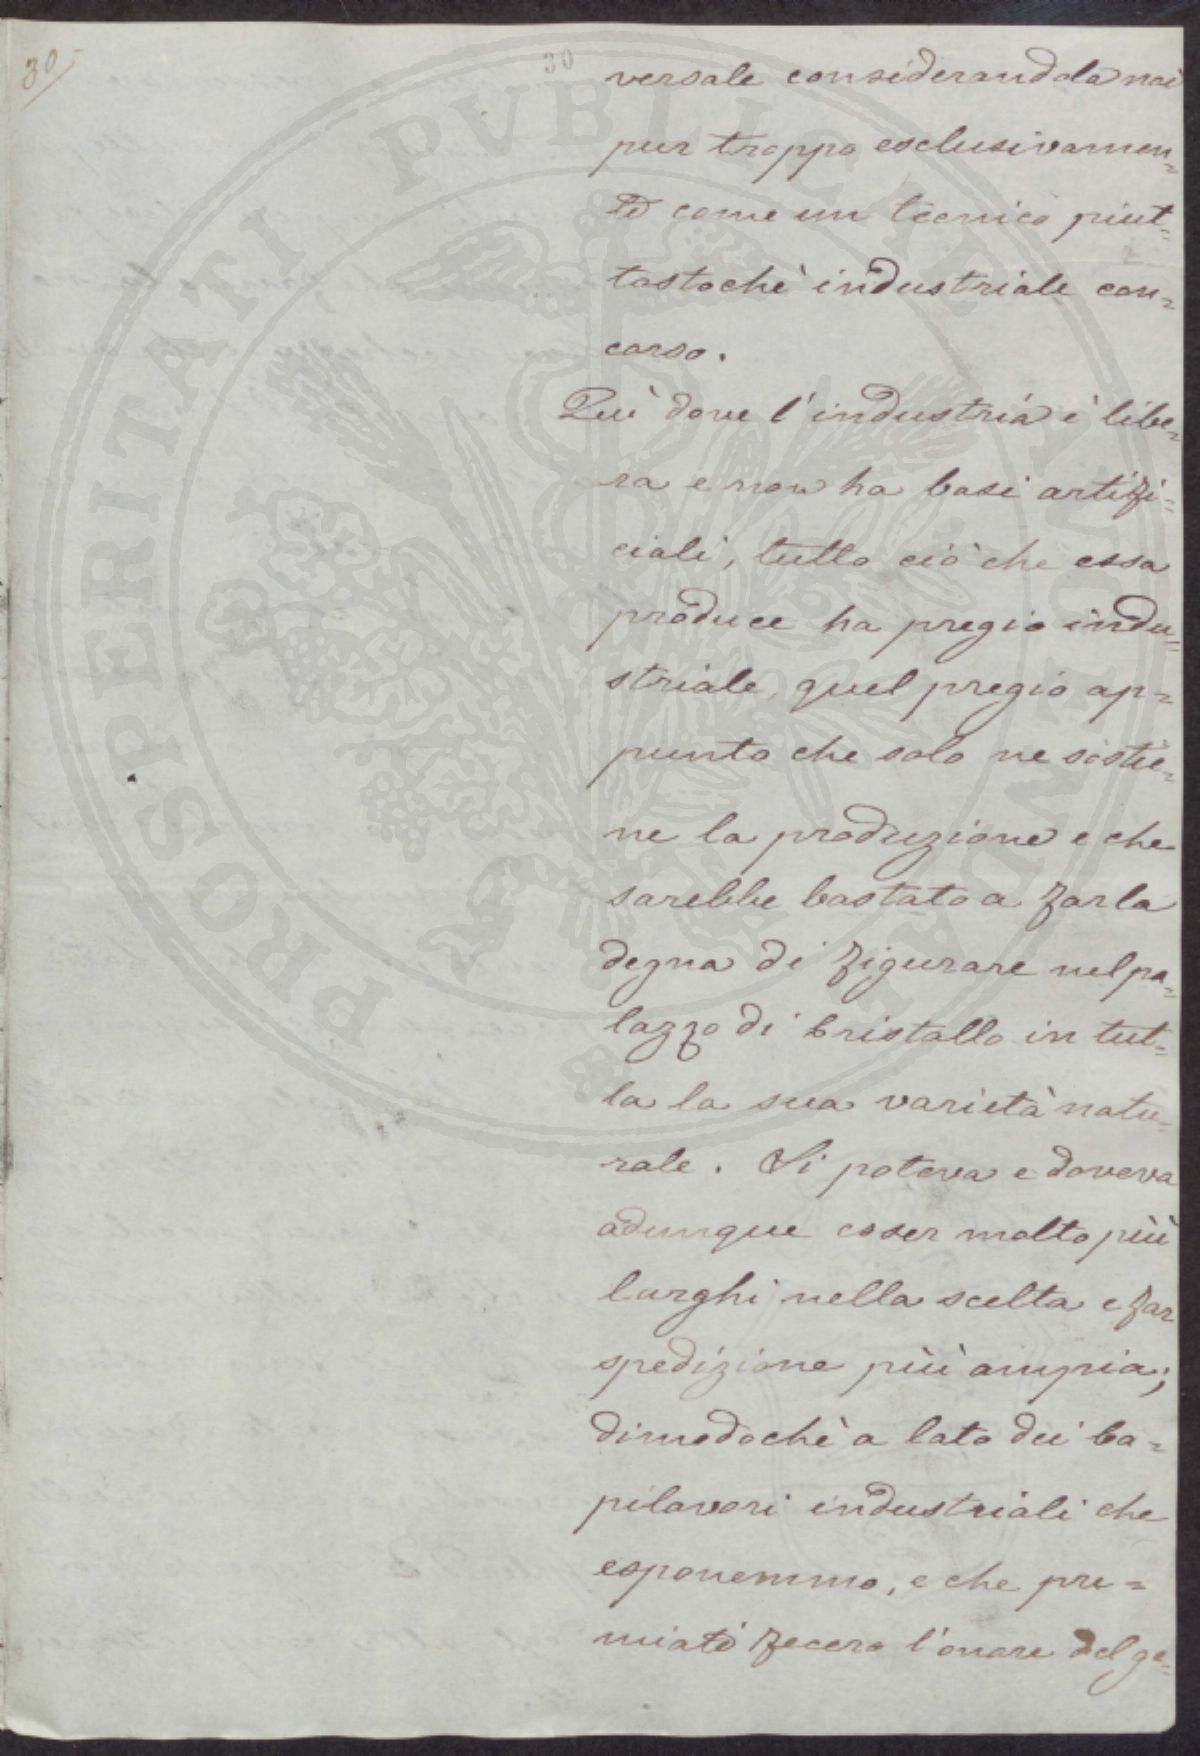 30
30
versale considerandola noi
pur troppo esclusivamen=
te come un tecnico piut=
tostochè industriale con=
corso.
Quì dove l'industria è libe=
ra e non ha basi artifi=
ciali, tutto ciò che essa
produce ha pregio indu=
striale, quel pregio ap=
punto che solo ne sostie=
ne la produzione e che
sarebbe bastato a farla
degna di figurare nel pa=
lazzo di Cristallo in tut=
ta la sua varietà natu=
rale. Si poteva e doveva
adunque esser molto più
larghi nella scelta e far
spedizione più ampia;
dimodochè a lato dei Ca=
pilavori industriali che
esponemmo, e che pre=
miati fecero l'onore del ge=
PROSPERITATI PVBLICAE